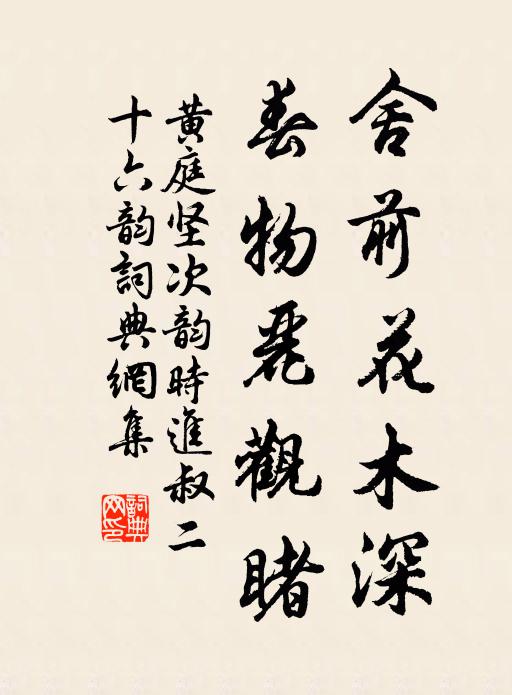 舍前花木深
春物麗觀睹
黄庭坚次韵時進叔二
十六韵詞典網集
詞典網印